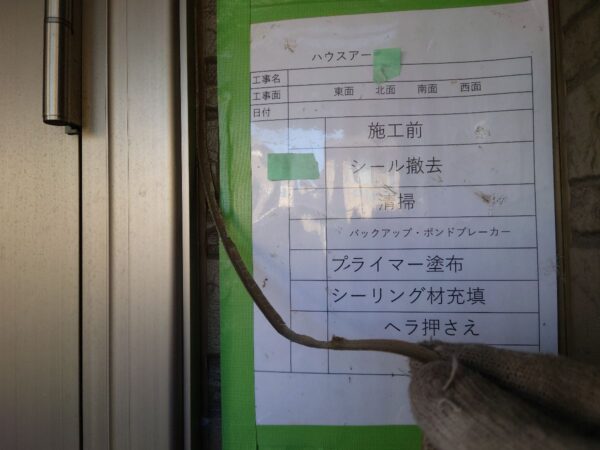 ハウスアー
工事名
工事面 東面 北面 南面 西面
日付
施工前
シール撤去
清掃
バックアップ・ボンドブレーカー
プライマー塗布
シーリング材充填
ヘラ押さえ